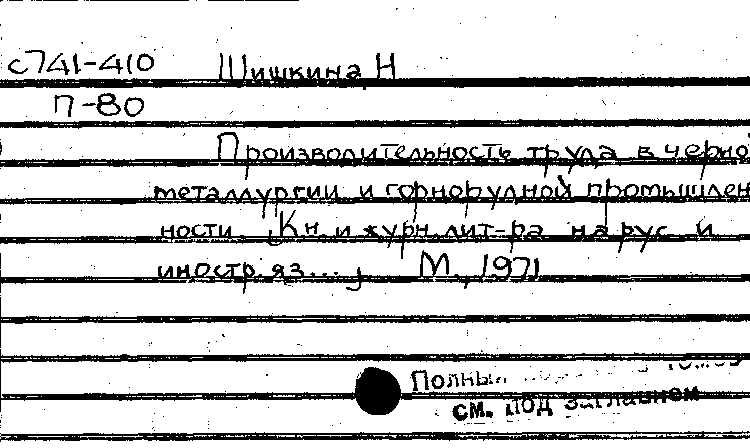 с741-410 Шишкина Н
П-80
Производительность труда в черно
металлургии и горнорудной промышлен
ности. Кн. и журн. лит-ра на рус. и
иностр. яз..., М., 1971
Полный
см. под заглавием